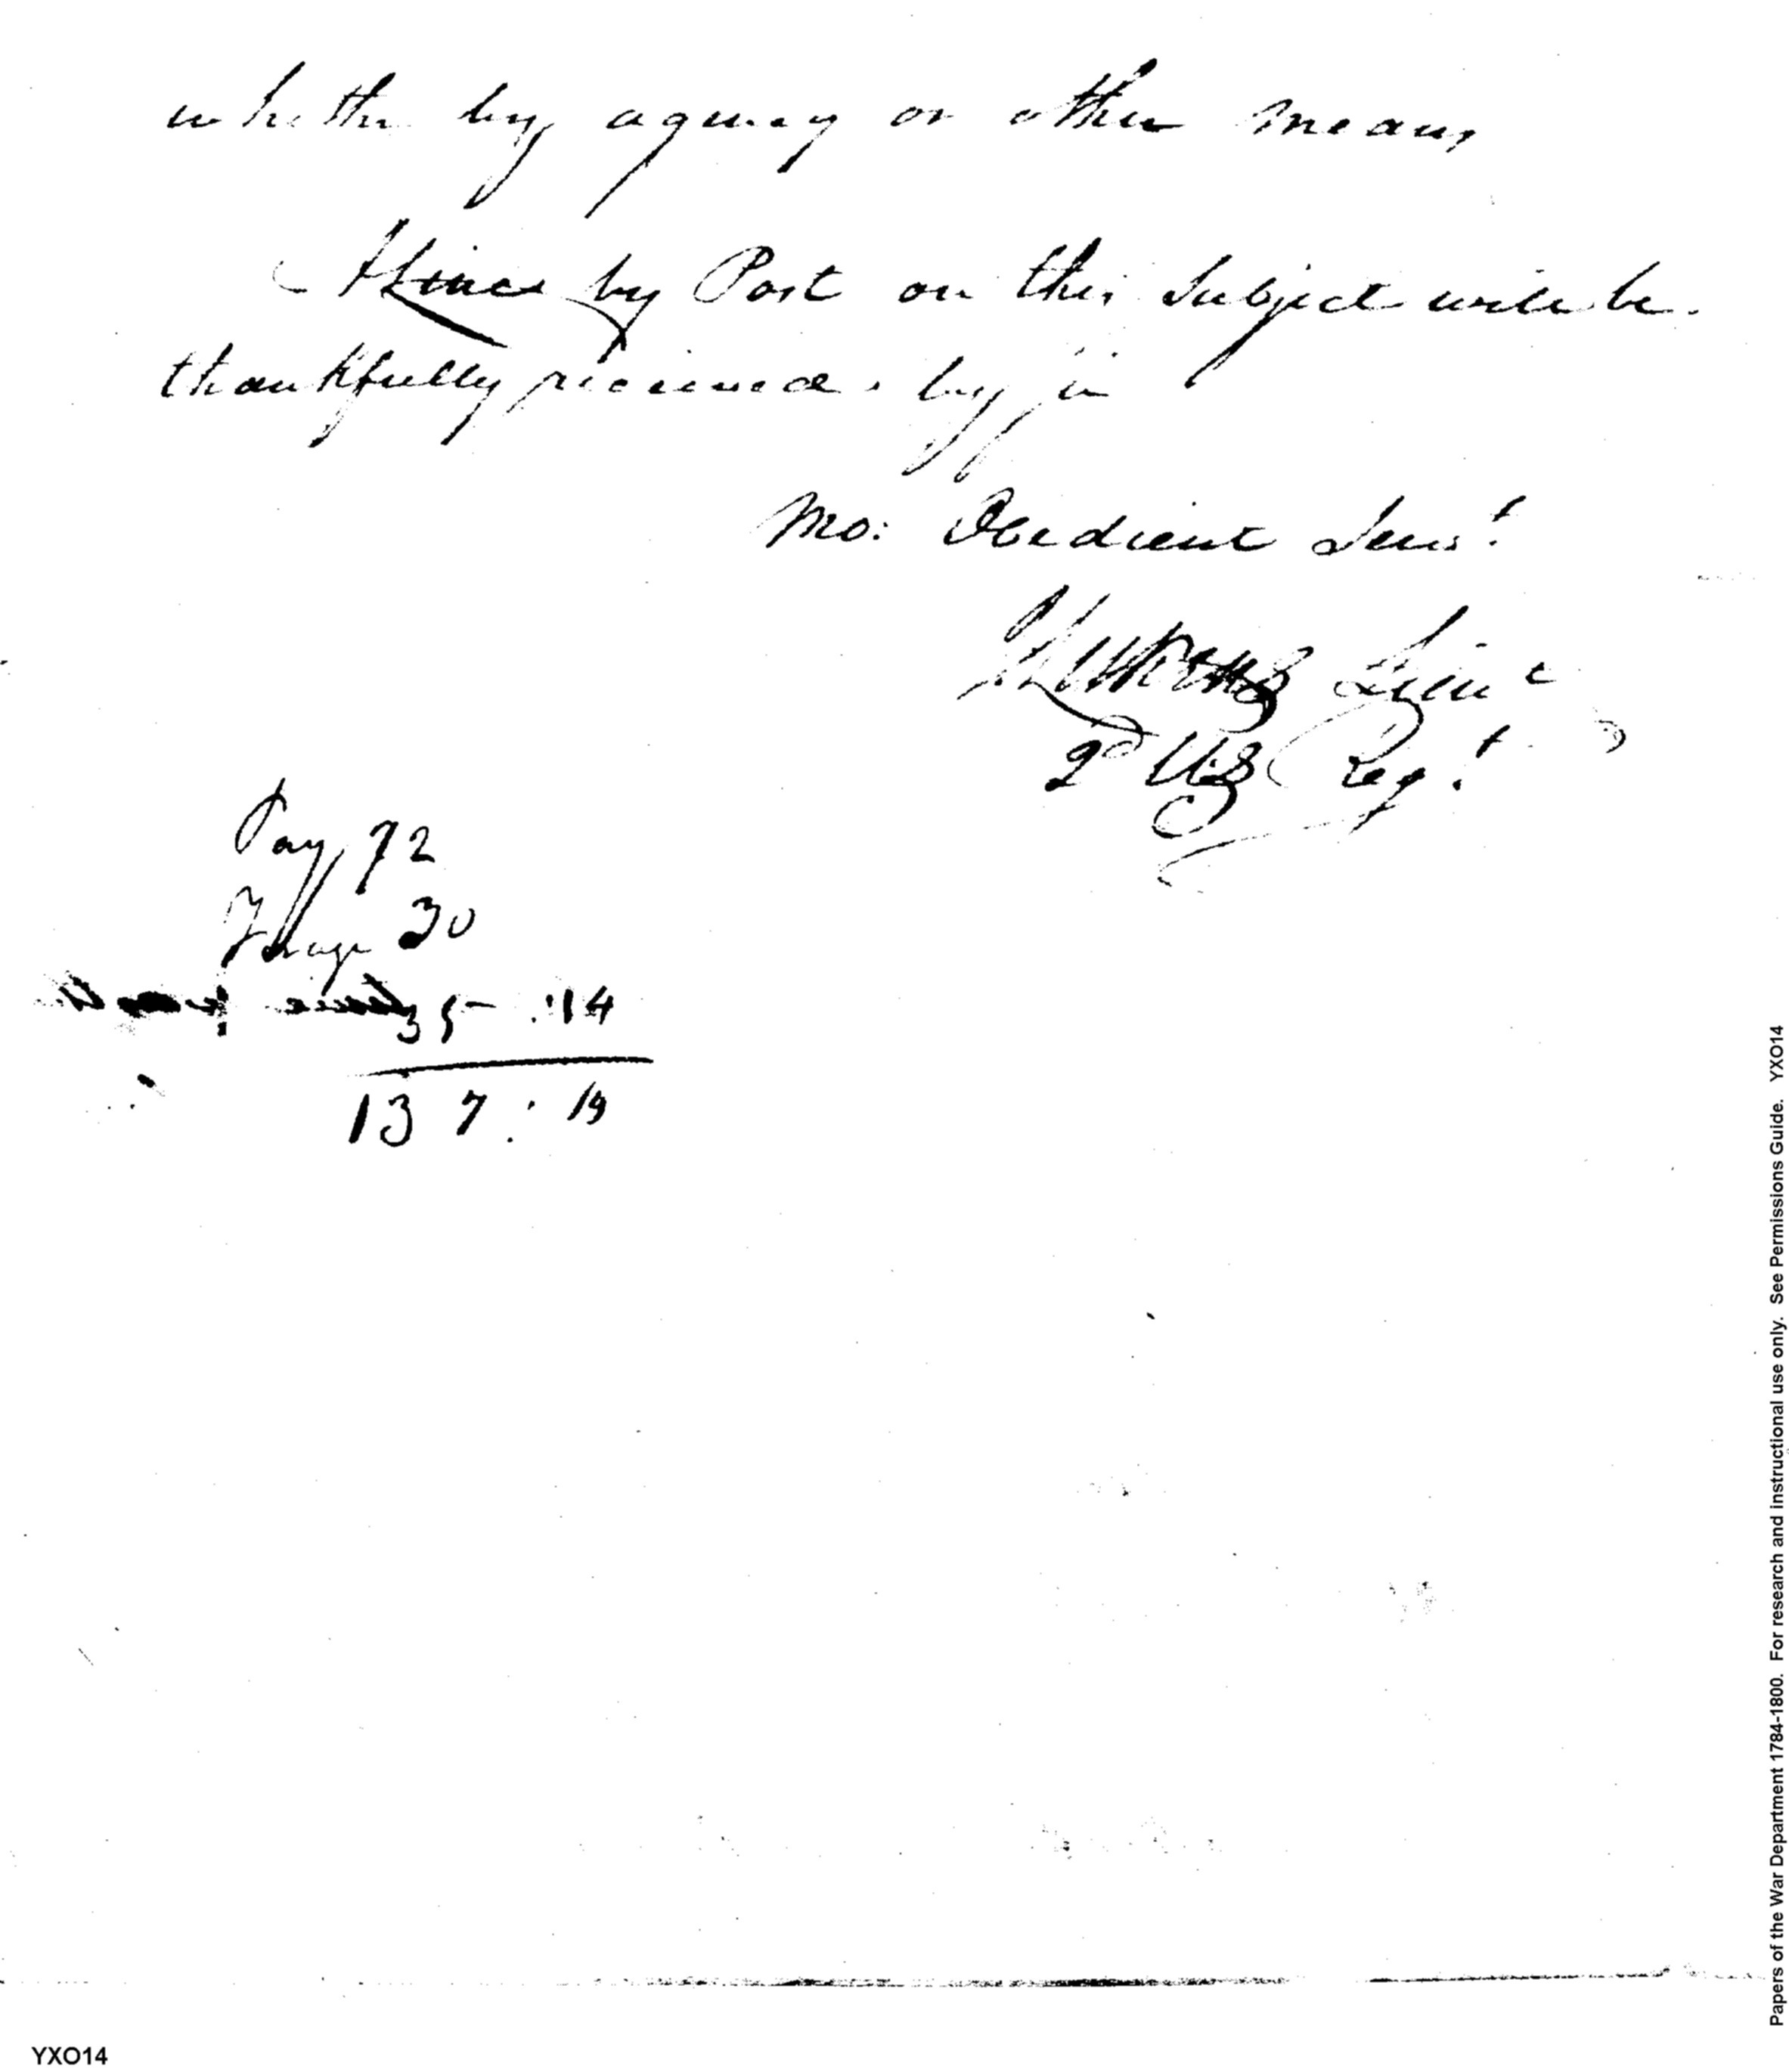 whether by agency or other means
A Line by Post on this Subject will be
thankfully received by
Mo: Obedient Serv.t
Lieu t
2d US Reg.t
Pay 72
Forage 30
35 - :14
137 : 14
YXO14
Papers of the War Department 1784-1800. For research and instructional use only. See Permissions Guide. YXO14